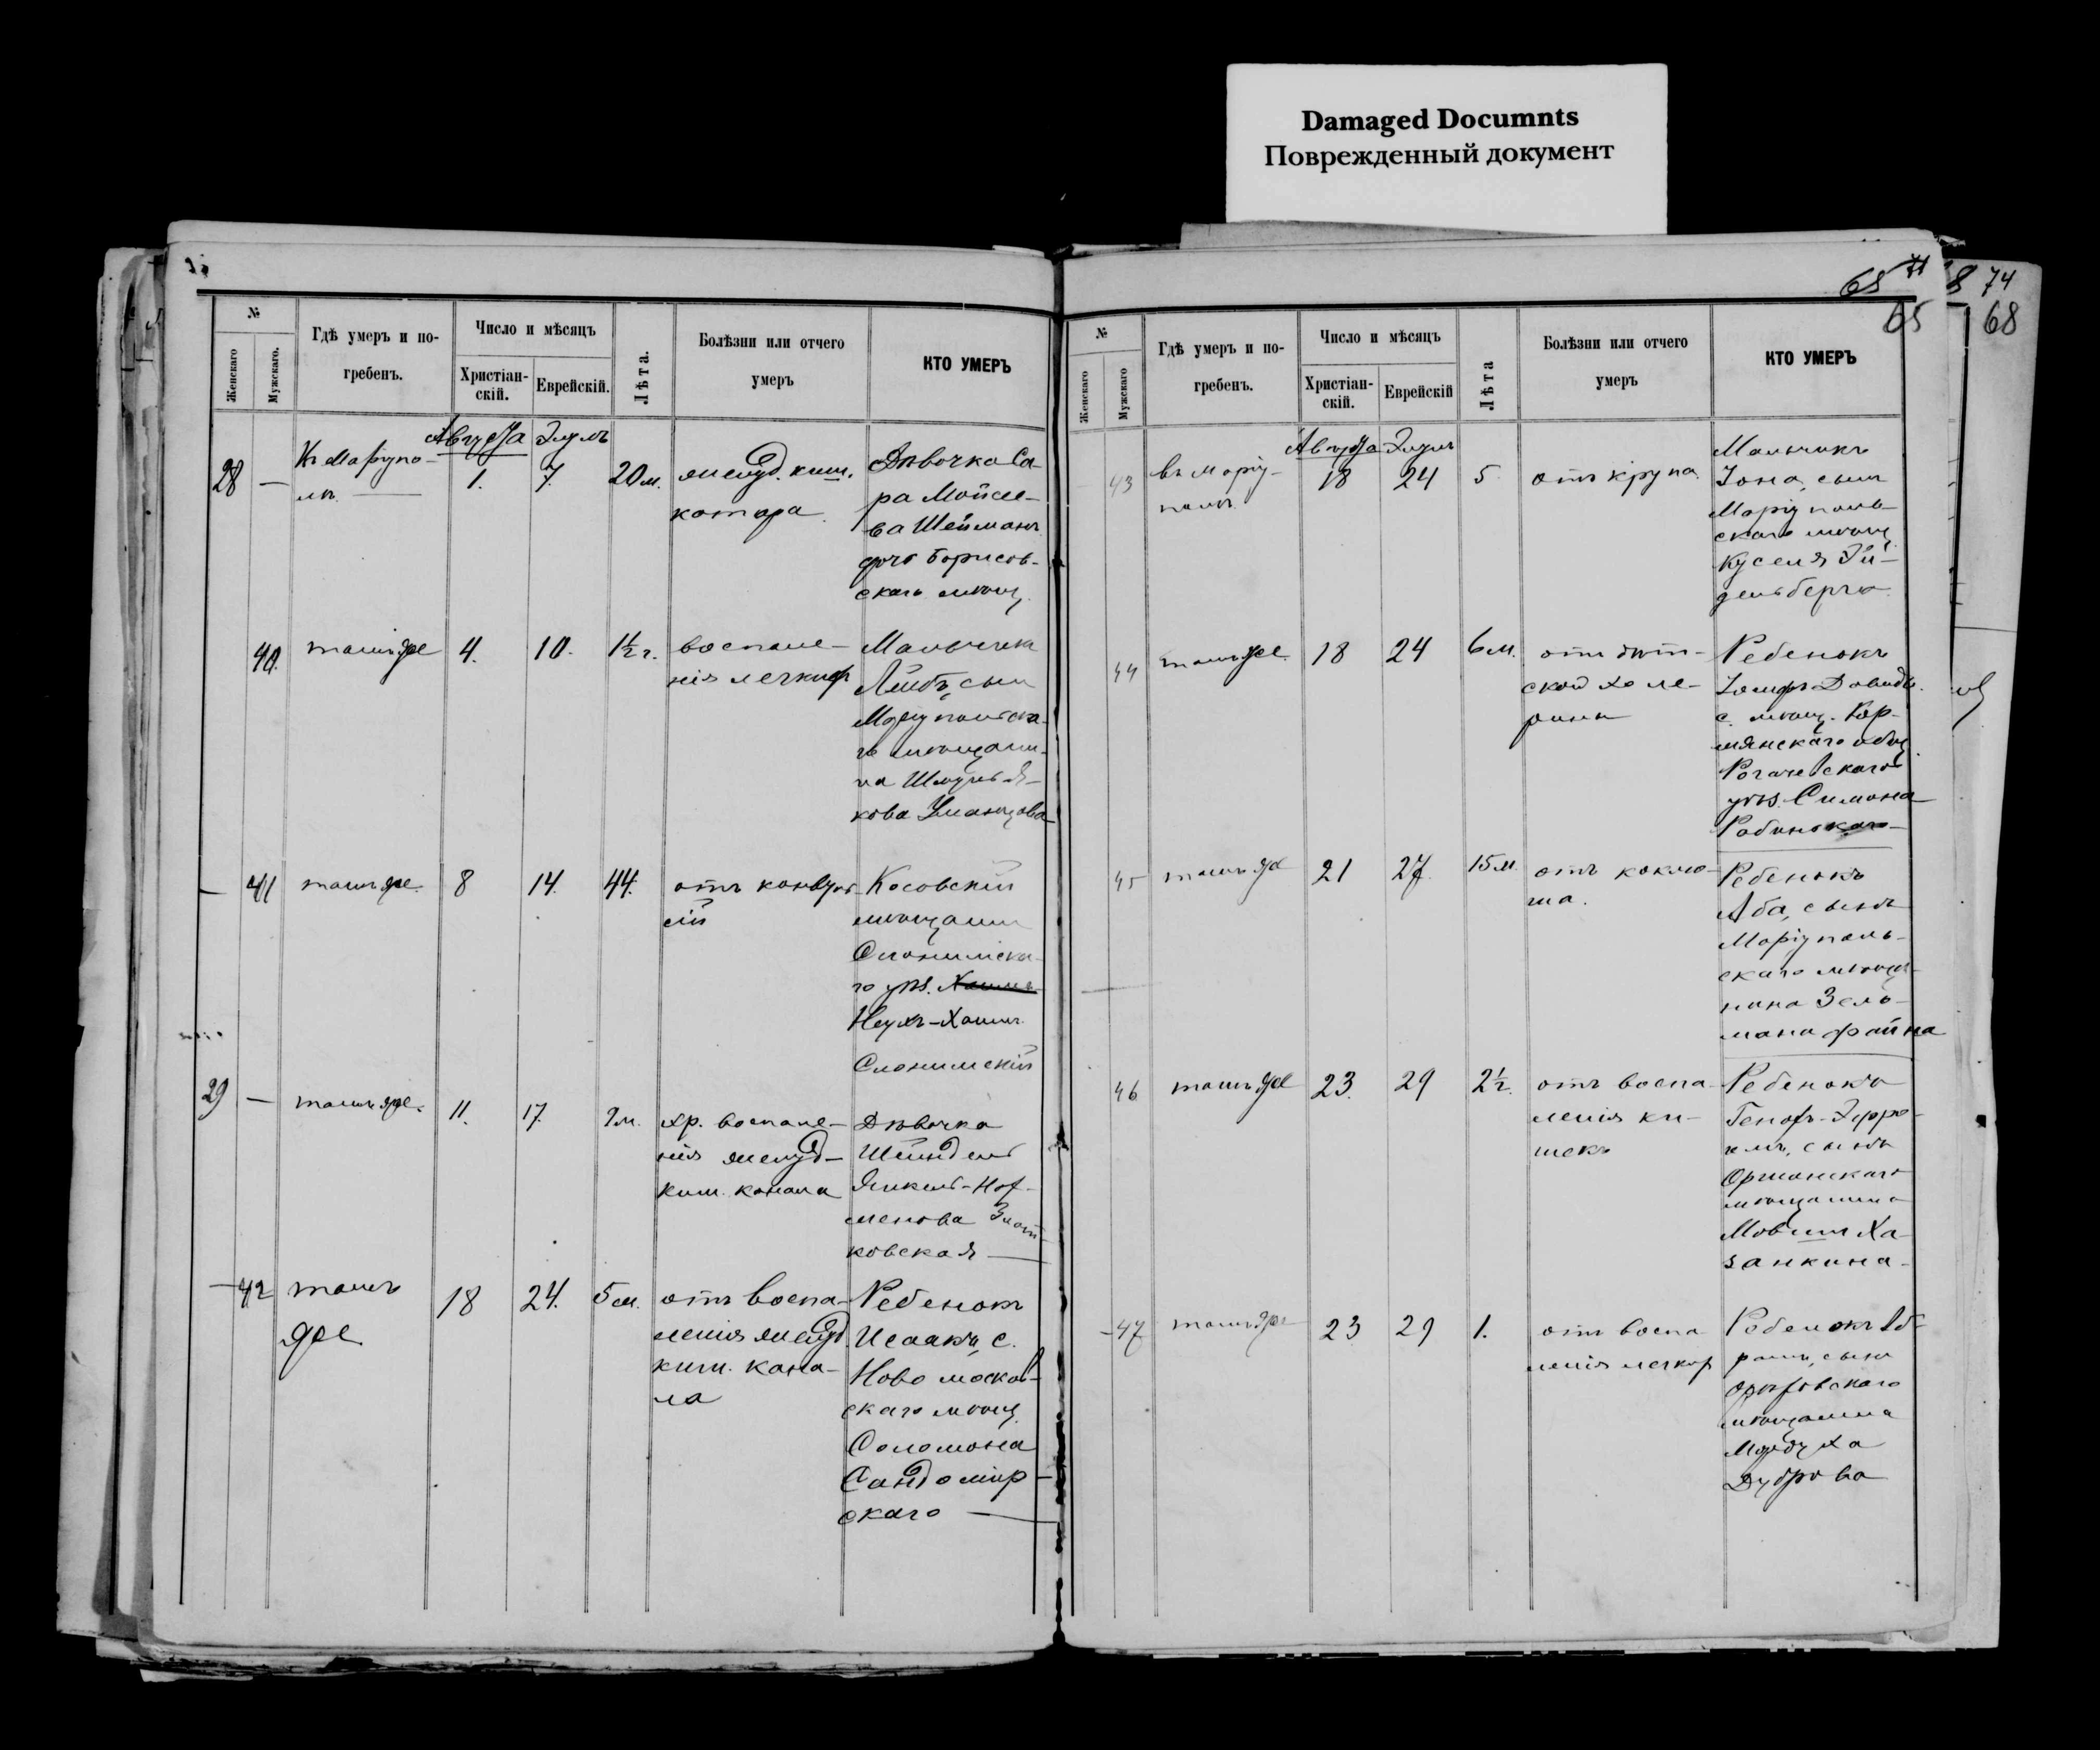 Damaged Documnts
Поврежденный документ
65 71
8 74
65
68
№
Женскаго
Мужскаго.
Гдѣ умеръ и по-
гребенъ.
Число и мѣсяцъ
Христіан-
скій.
Еврейскій.
Лѣта.
Болѣзни или отчего
умеръ
КТО УМЕРЪ
Августа Элулъ
28 — 1. 7. 20 м. желуд. киш.
катара
Дѣвочка Са-
ра Мойсее-
ва Шейманъ
дочь Борисов-
скаго мѣщ.
40. тамъ же 4. 10. 1½ г. воспале-
нія легкихъ
Мальчикъ
Лейбъ, сынъ
Маріупольска-
го мѣщани-
на Шмуль Я-
кова Уманцова
41 тамъ же. 8 14. 44. отъ конвуль-
сій
Косовскій
мѣщанинъ
Слонимска-
го уѣз.
Слонимскій
29 — тамъ же. 11. 17. хр. воспале-
нія желуд-
киш. канала
Дѣвочка
Шейндель
ковская
42 тамъ
же
18 24. 5 м. отъ воспа-
ленія желуд.
киш. кана-
ла
Ребенокъ
Исаакъ, с.
Ново москов-
скаго мѣщ.
Соломона
Сандомир-
скаго
№
Женскаго
Мужскаго
Гдѣ умеръ и по-
гребенъ.
Число и мѣсяцъ
Христіан-
скій.
Еврейскій
Лѣта
Болѣзни или отчего
умеръ
КТО УМЕРЪ
Августа Элулъ
43 въ Маріу-
полѣ
18 24 5 отъ крупа
Мальчикъ
Іона, сынъ
Маріуполь-
скаго мѣщ.
Куселя Эй-
дельберга
44 тамъ же. 18 24 6 м. отъ дѣт-
ской холе-
рины
Ребенокъ
с. мѣщ.
мянскаго общ.
Рогачевскаго
уѣз. Симона
Рабинскаго
45 тамъ же 21 27. 15 м. отъ коклю-
ша.
Ребенокъ
Аба, сынъ
Маріуполь-
скаго мѣща-
нина Зель-
мана Файна
46 тамъ же 23. 29 2½. отъ воспа-
ленія ки-
шекъ
Ребенокъ
сынъ
Оршанскаго
мѣщанина
Мовши Ха-
занкина
47 тамъ же 23 29 1. отъ воспа
ленія легких
Ребенокъ Аб-
рамъ, сынъ
мѣщанина
Мордуха
Дуброва